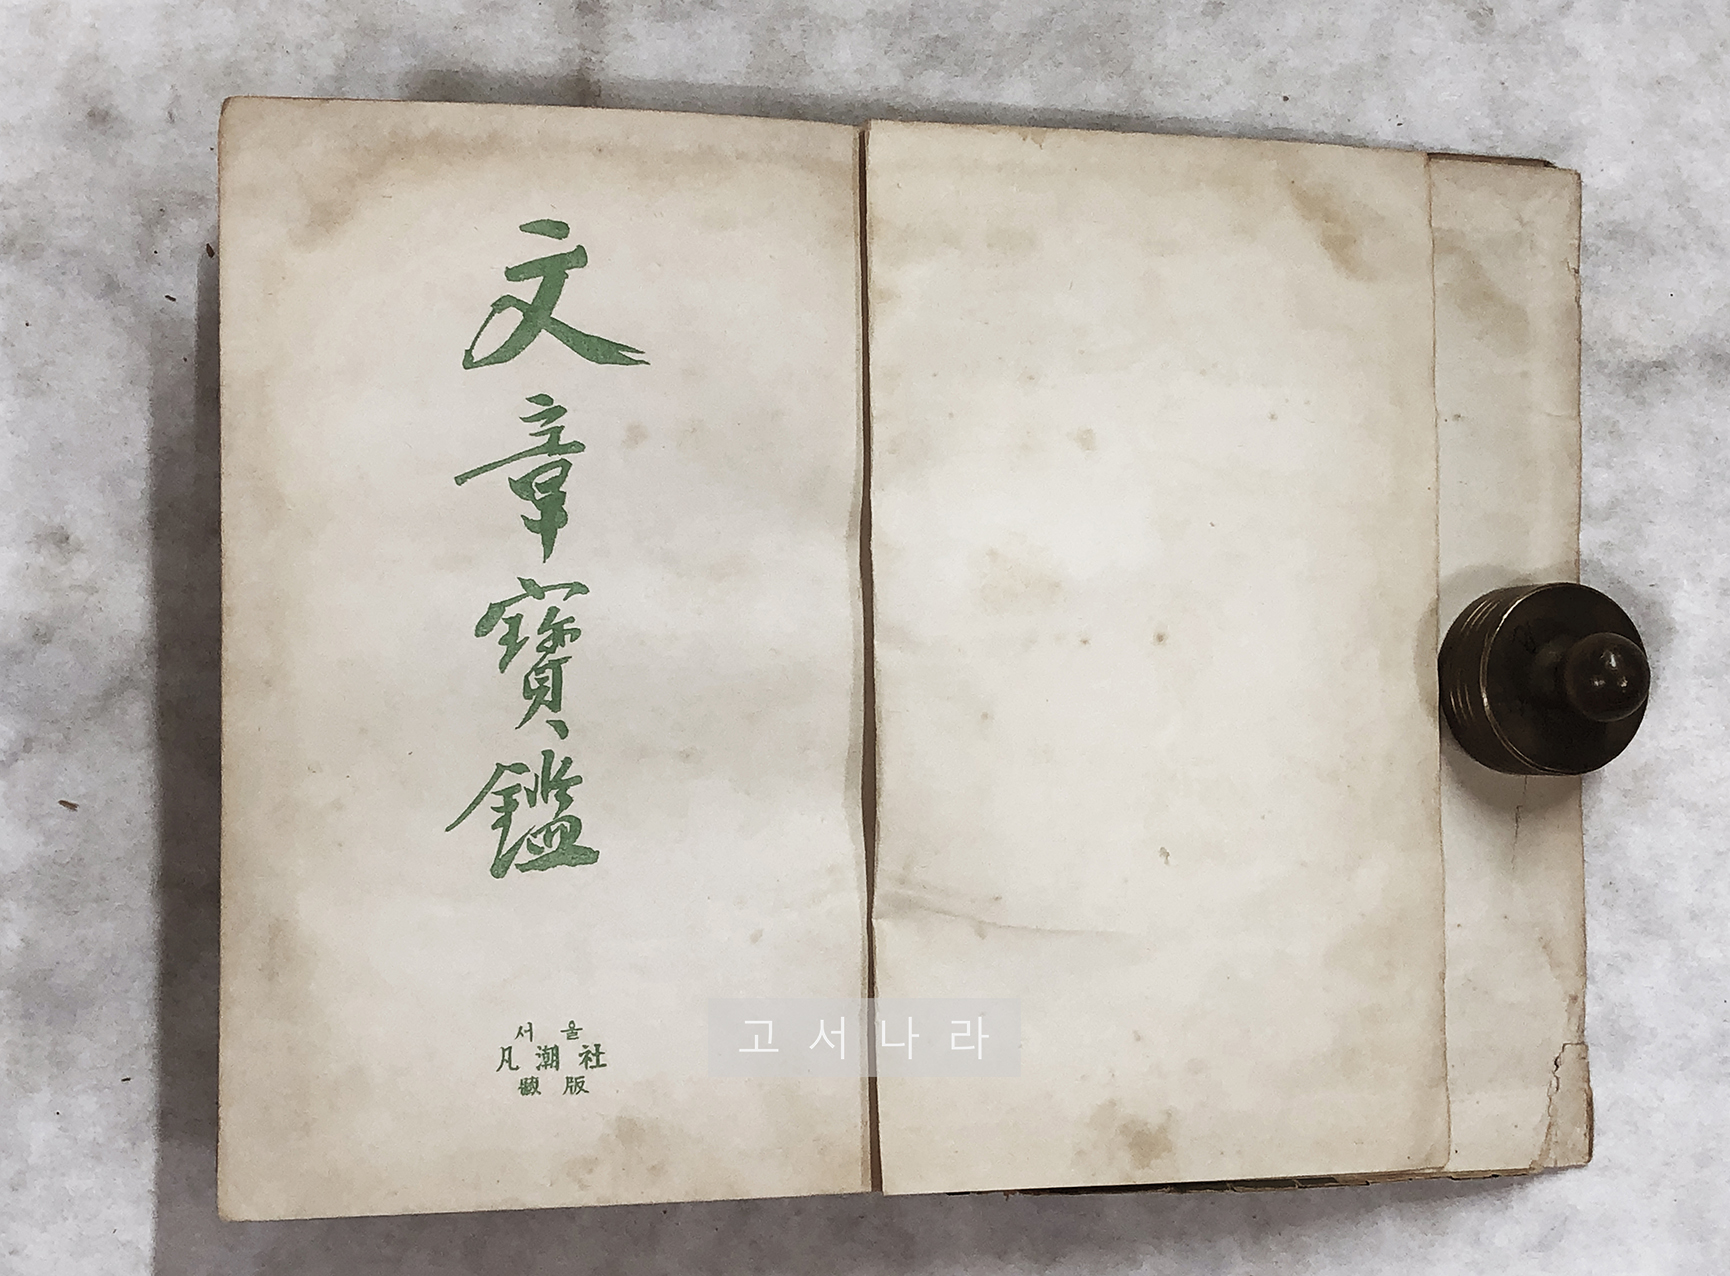 文章寶鑑
서울
凡潮社
版
고서나라